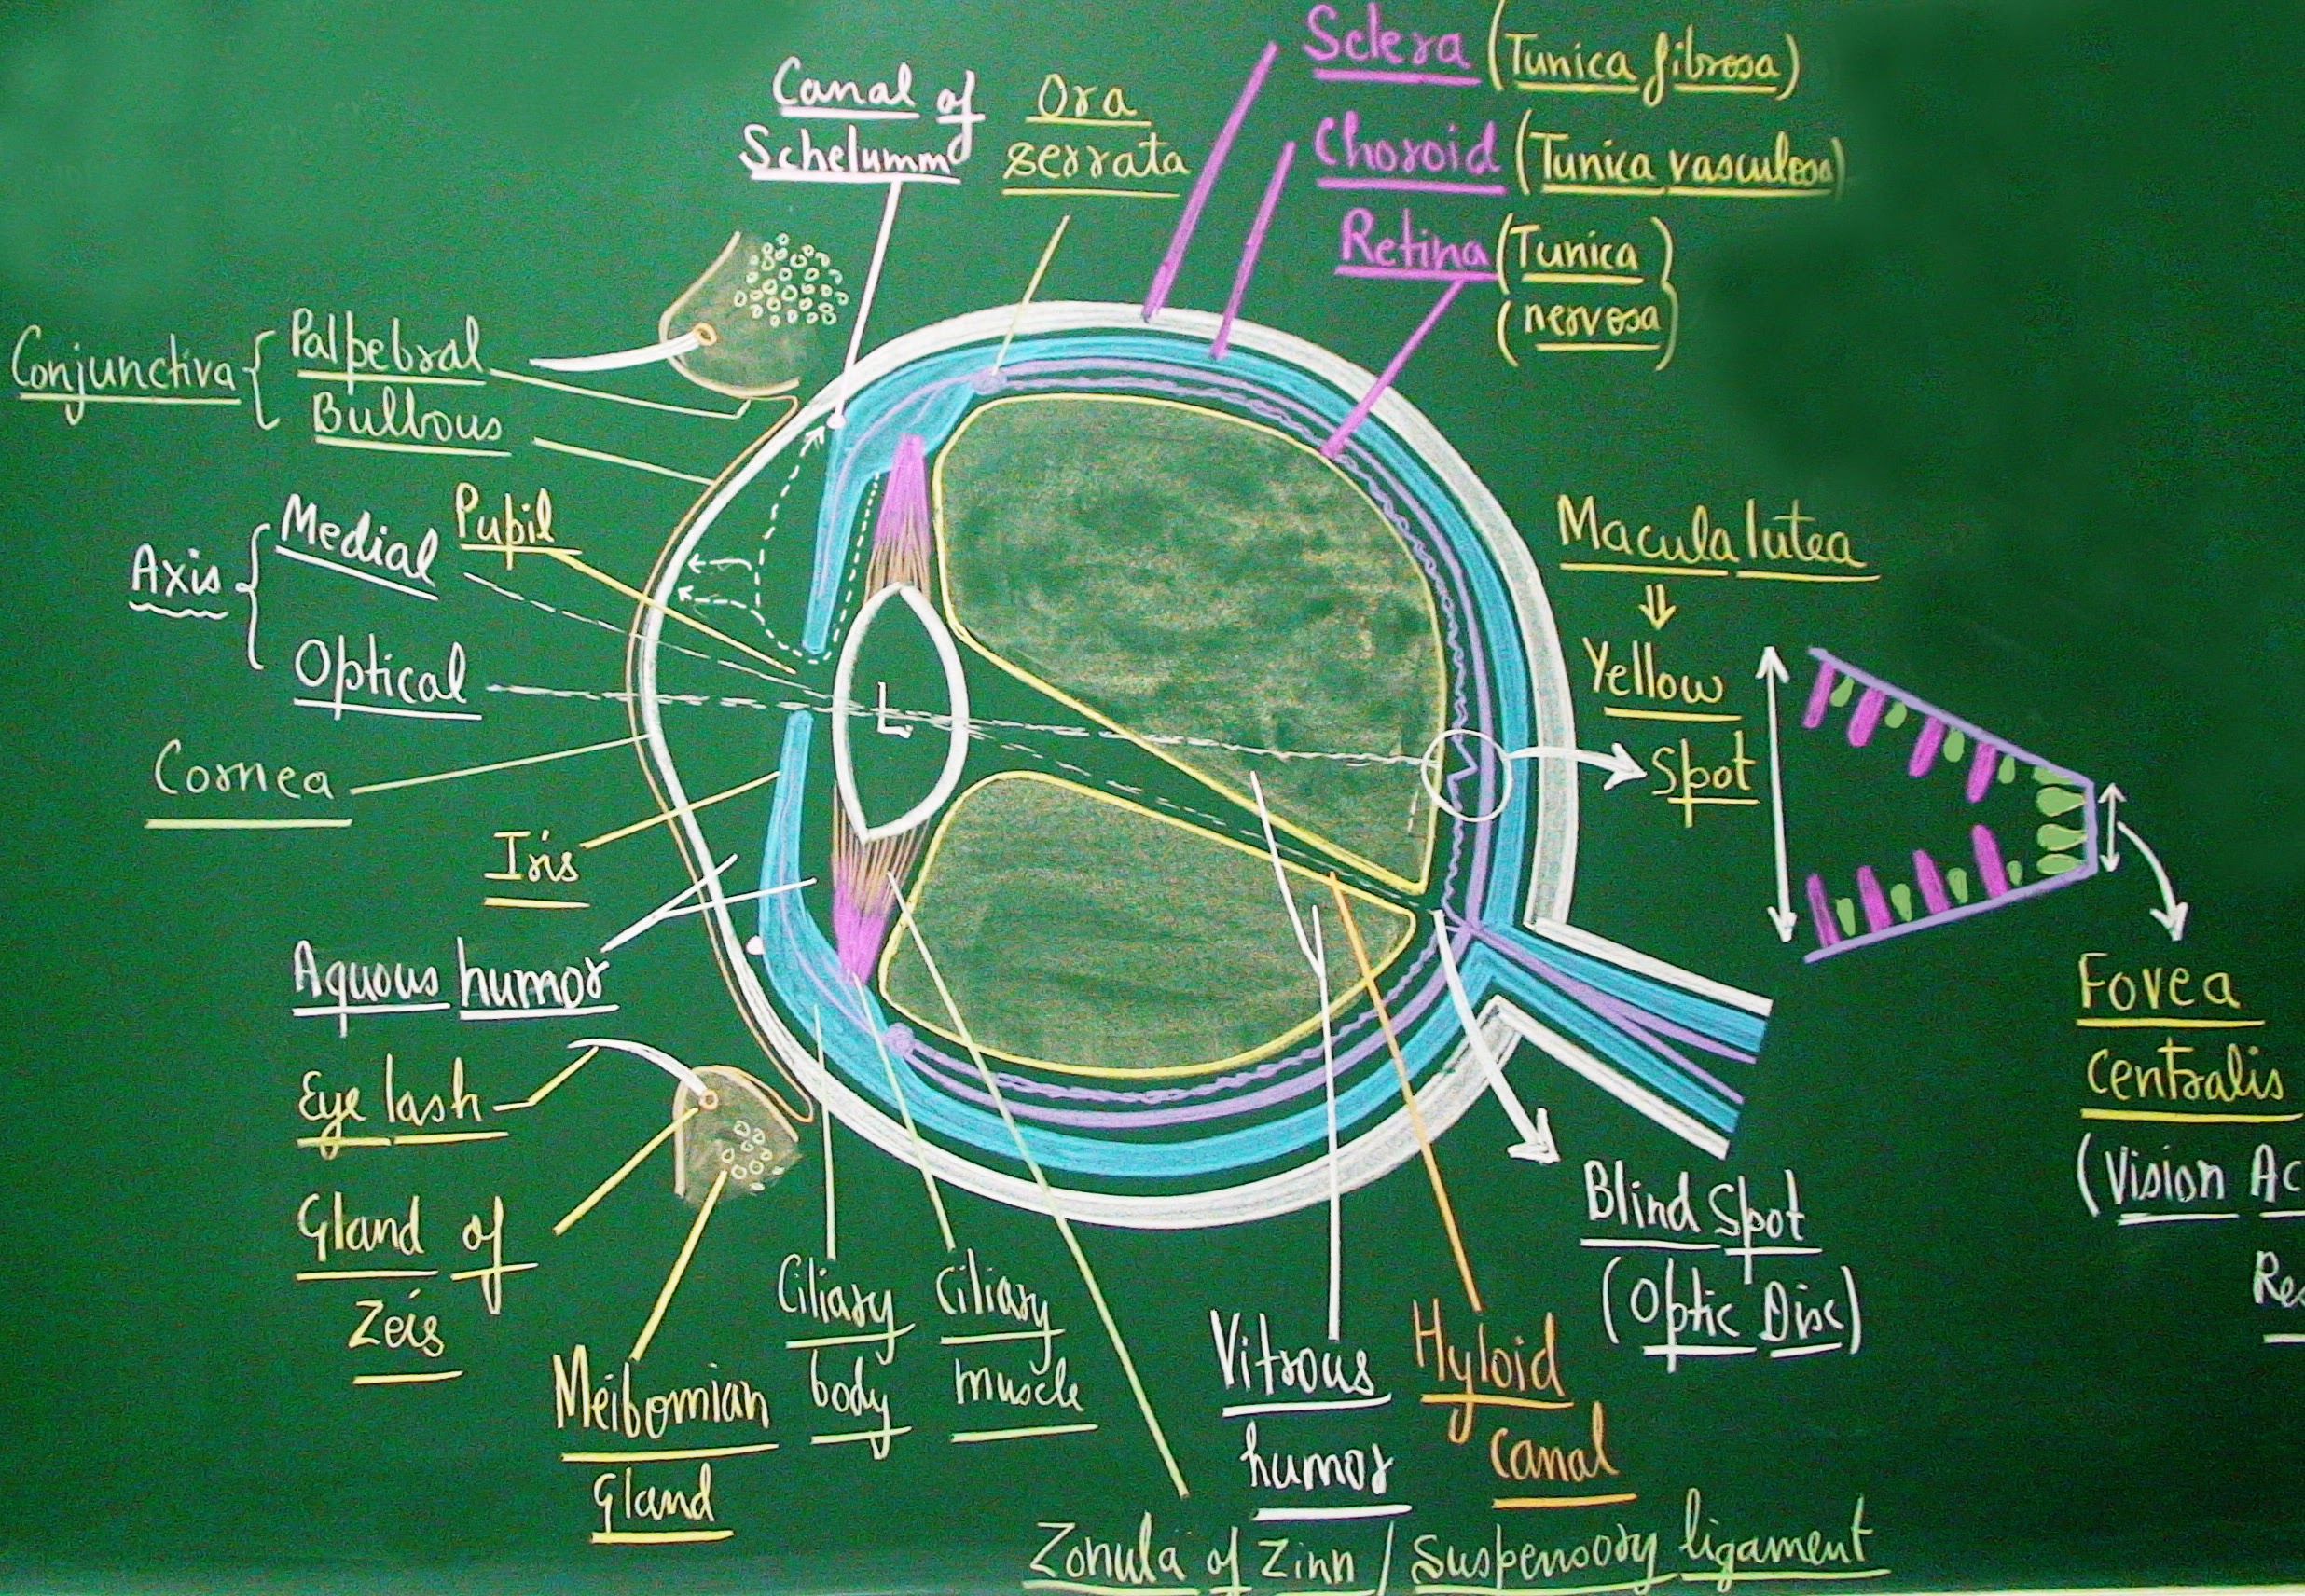 Canal of
Schelumm
Ora
serrata
Sclera (Tunica fibrosa)
Choroid (Tunica vasculosa)
Retina (Tunica
(nervosa)
Conjunctiva { Palpebral
Bulbous
Axis { Medial
Optical
Pupil
Cornea
Iris
Aquous humor
Eye lash
Gland of
Zeis
Meibomian
Gland
Ciliary
body
Ciliary
muscle
Zonula of Zinn / Suspensory ligament
Vitrous
humor
Hyloid
canal
Blind Spot
(Optic Disc)
L
Macula lutea
⇓
Yellow
Spot
Fovea
Centralis
(Vision Ac
Res